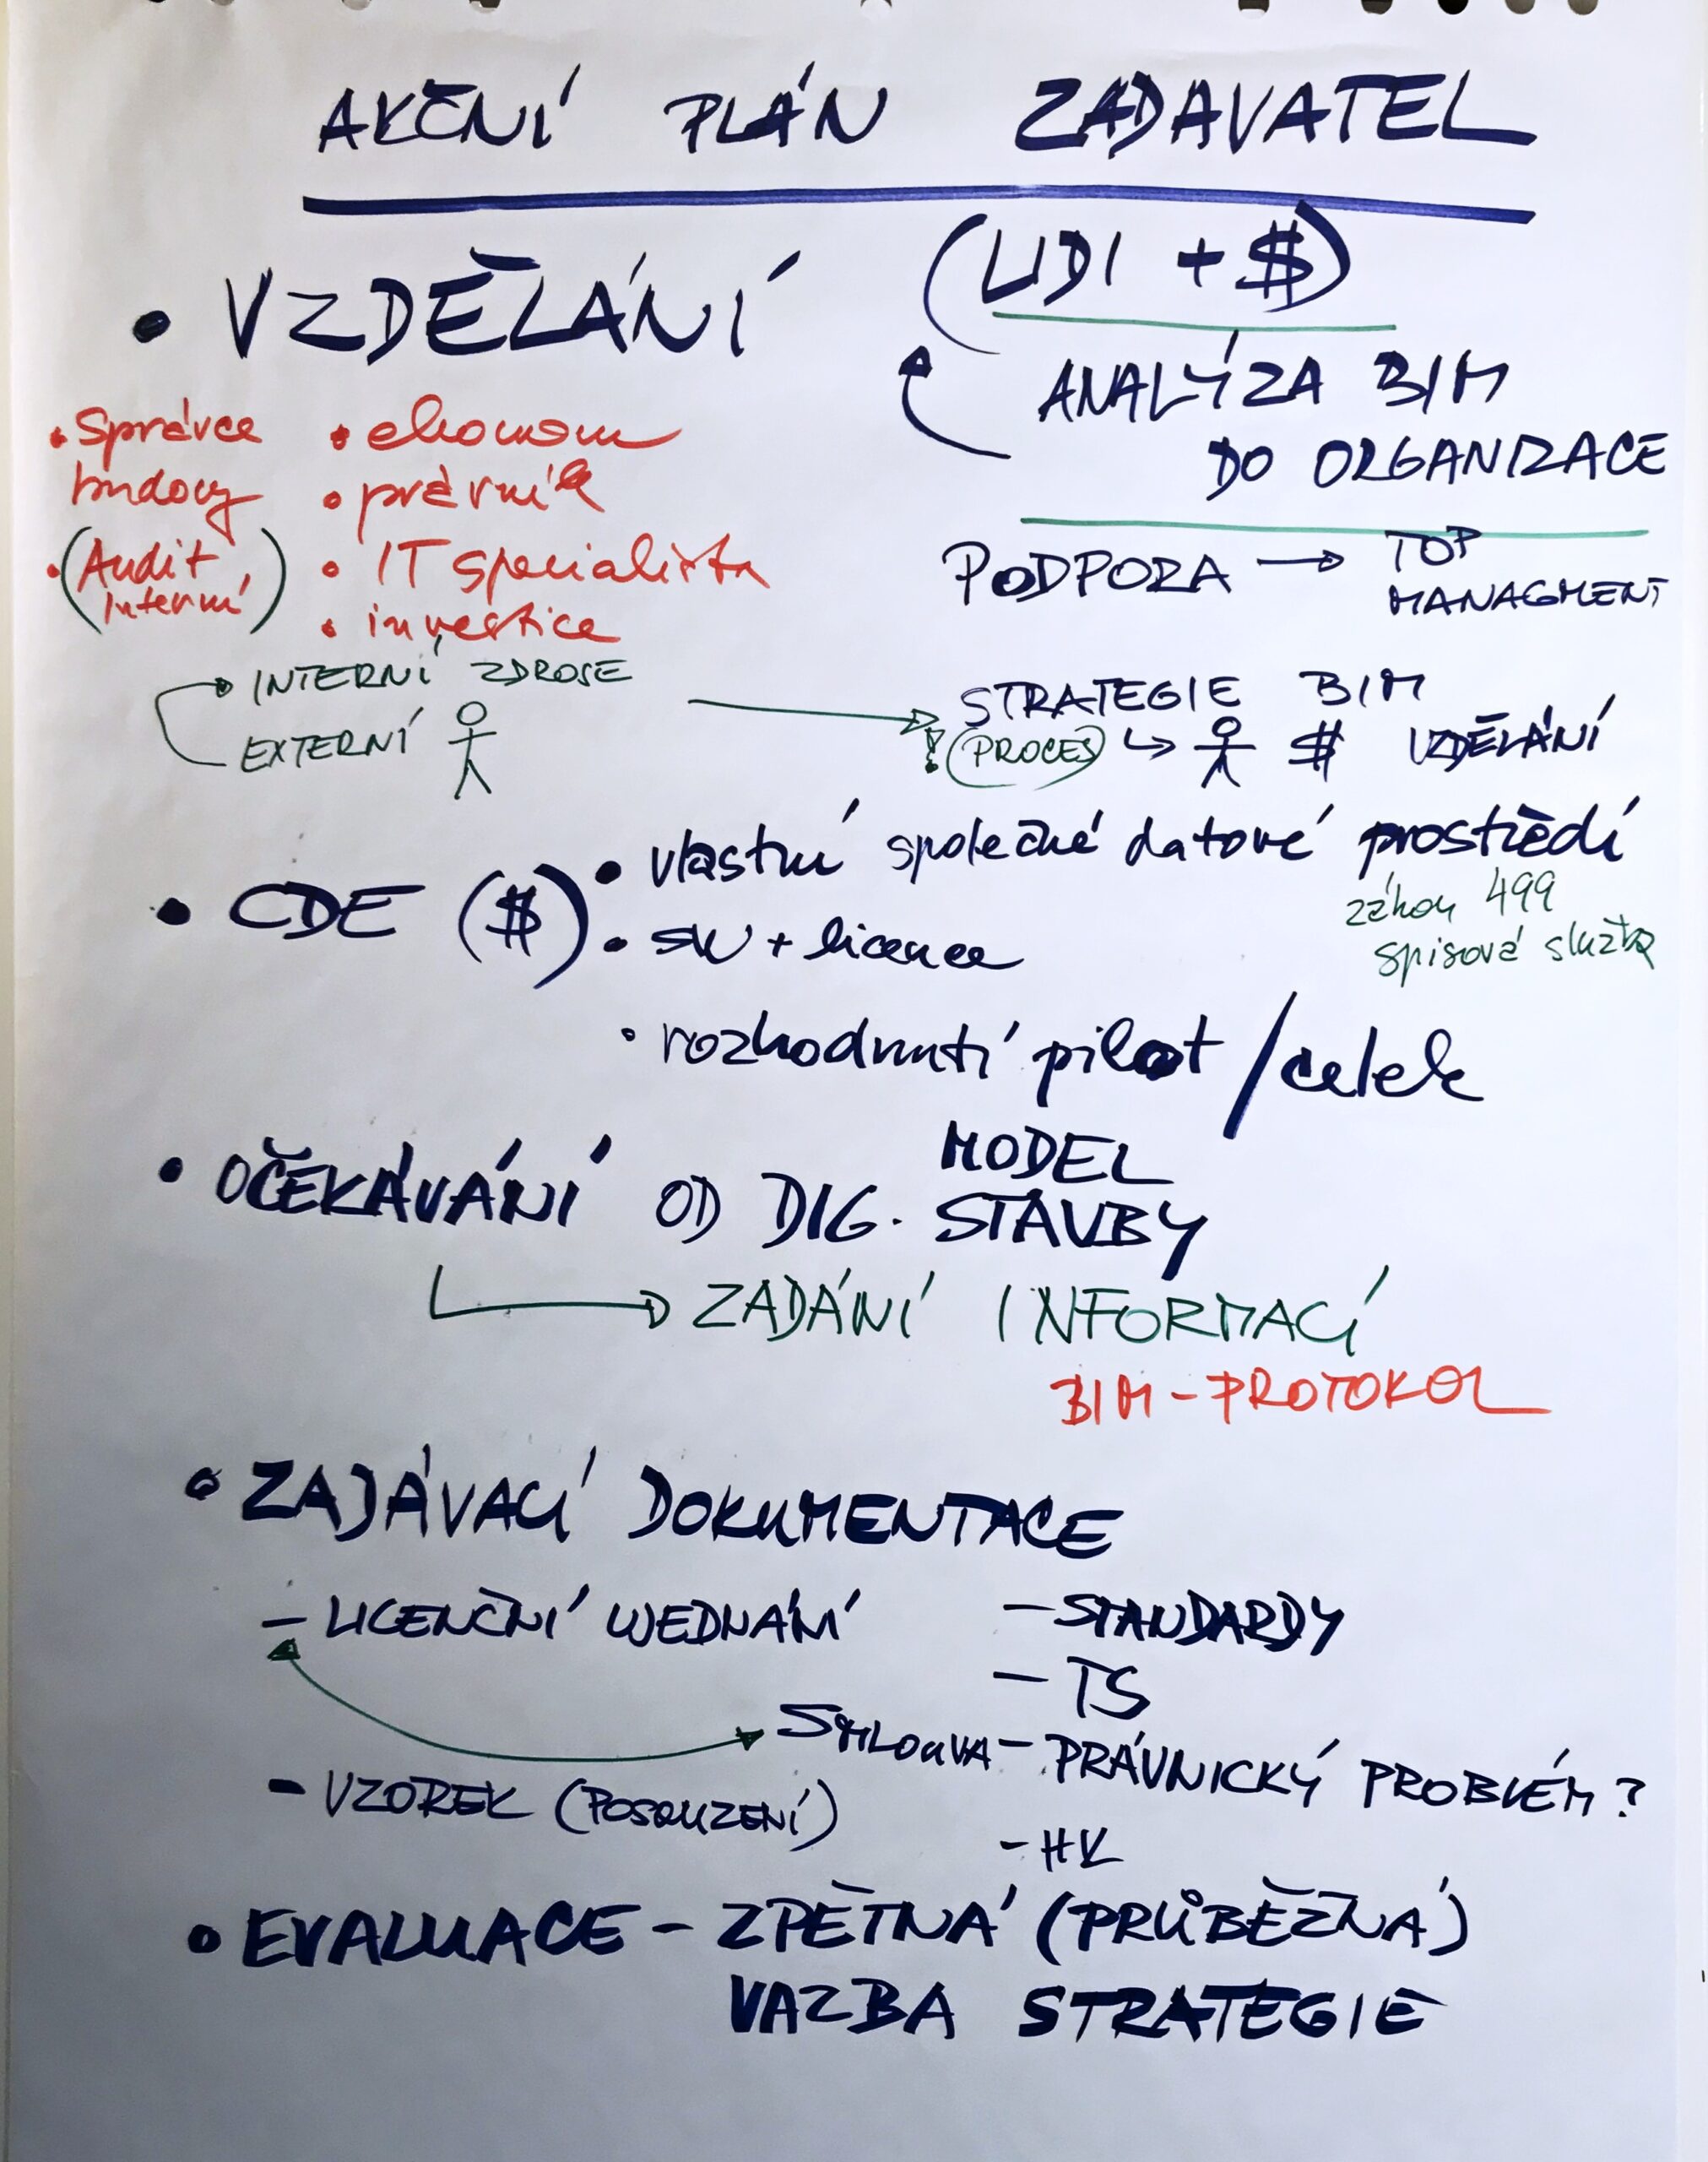 AKČNÍ PLÁN ZADAVATEL
• VZDĚLÁNÍ
(LIDI + $)
ANALÝZA BIM
DO ORGANIZACE
• Správce
budovy
• (Audit
Interní)
• ekonom
• právník
• IT specialista
• investice
PODPORA → TOP
MANAGMENT
INTERNÍ ZDROJE
EXTERNÍ
STRATEGIE BIM
! (PROCES) ↳ $ VZDĚLÁNÍ
• CDE ($)
• vlastní společné datové prostředí
zákon 499
spisová služba
• SW + licence
• rozhodnutí pilot / celek
• OČEKÁVÁNÍ OD DIG. MODEL
STAVBY
→ ZADÁNÍ INFORMACÍ
BIM - PROTOKOL
• ZADÁVACÍ DOKUMENTACE
- LICENČNÍ UJEDNÁNÍ
- VZOREK (POSOUZENÍ)
- STANDARDY
- TS
SMLOUVA - PRÁVNICKÝ PROBLÉM ?
- HK
• EVALUACE - ZPĚTNÁ (PRŮBĚŽNÁ)
VAZBA STRATEGIE